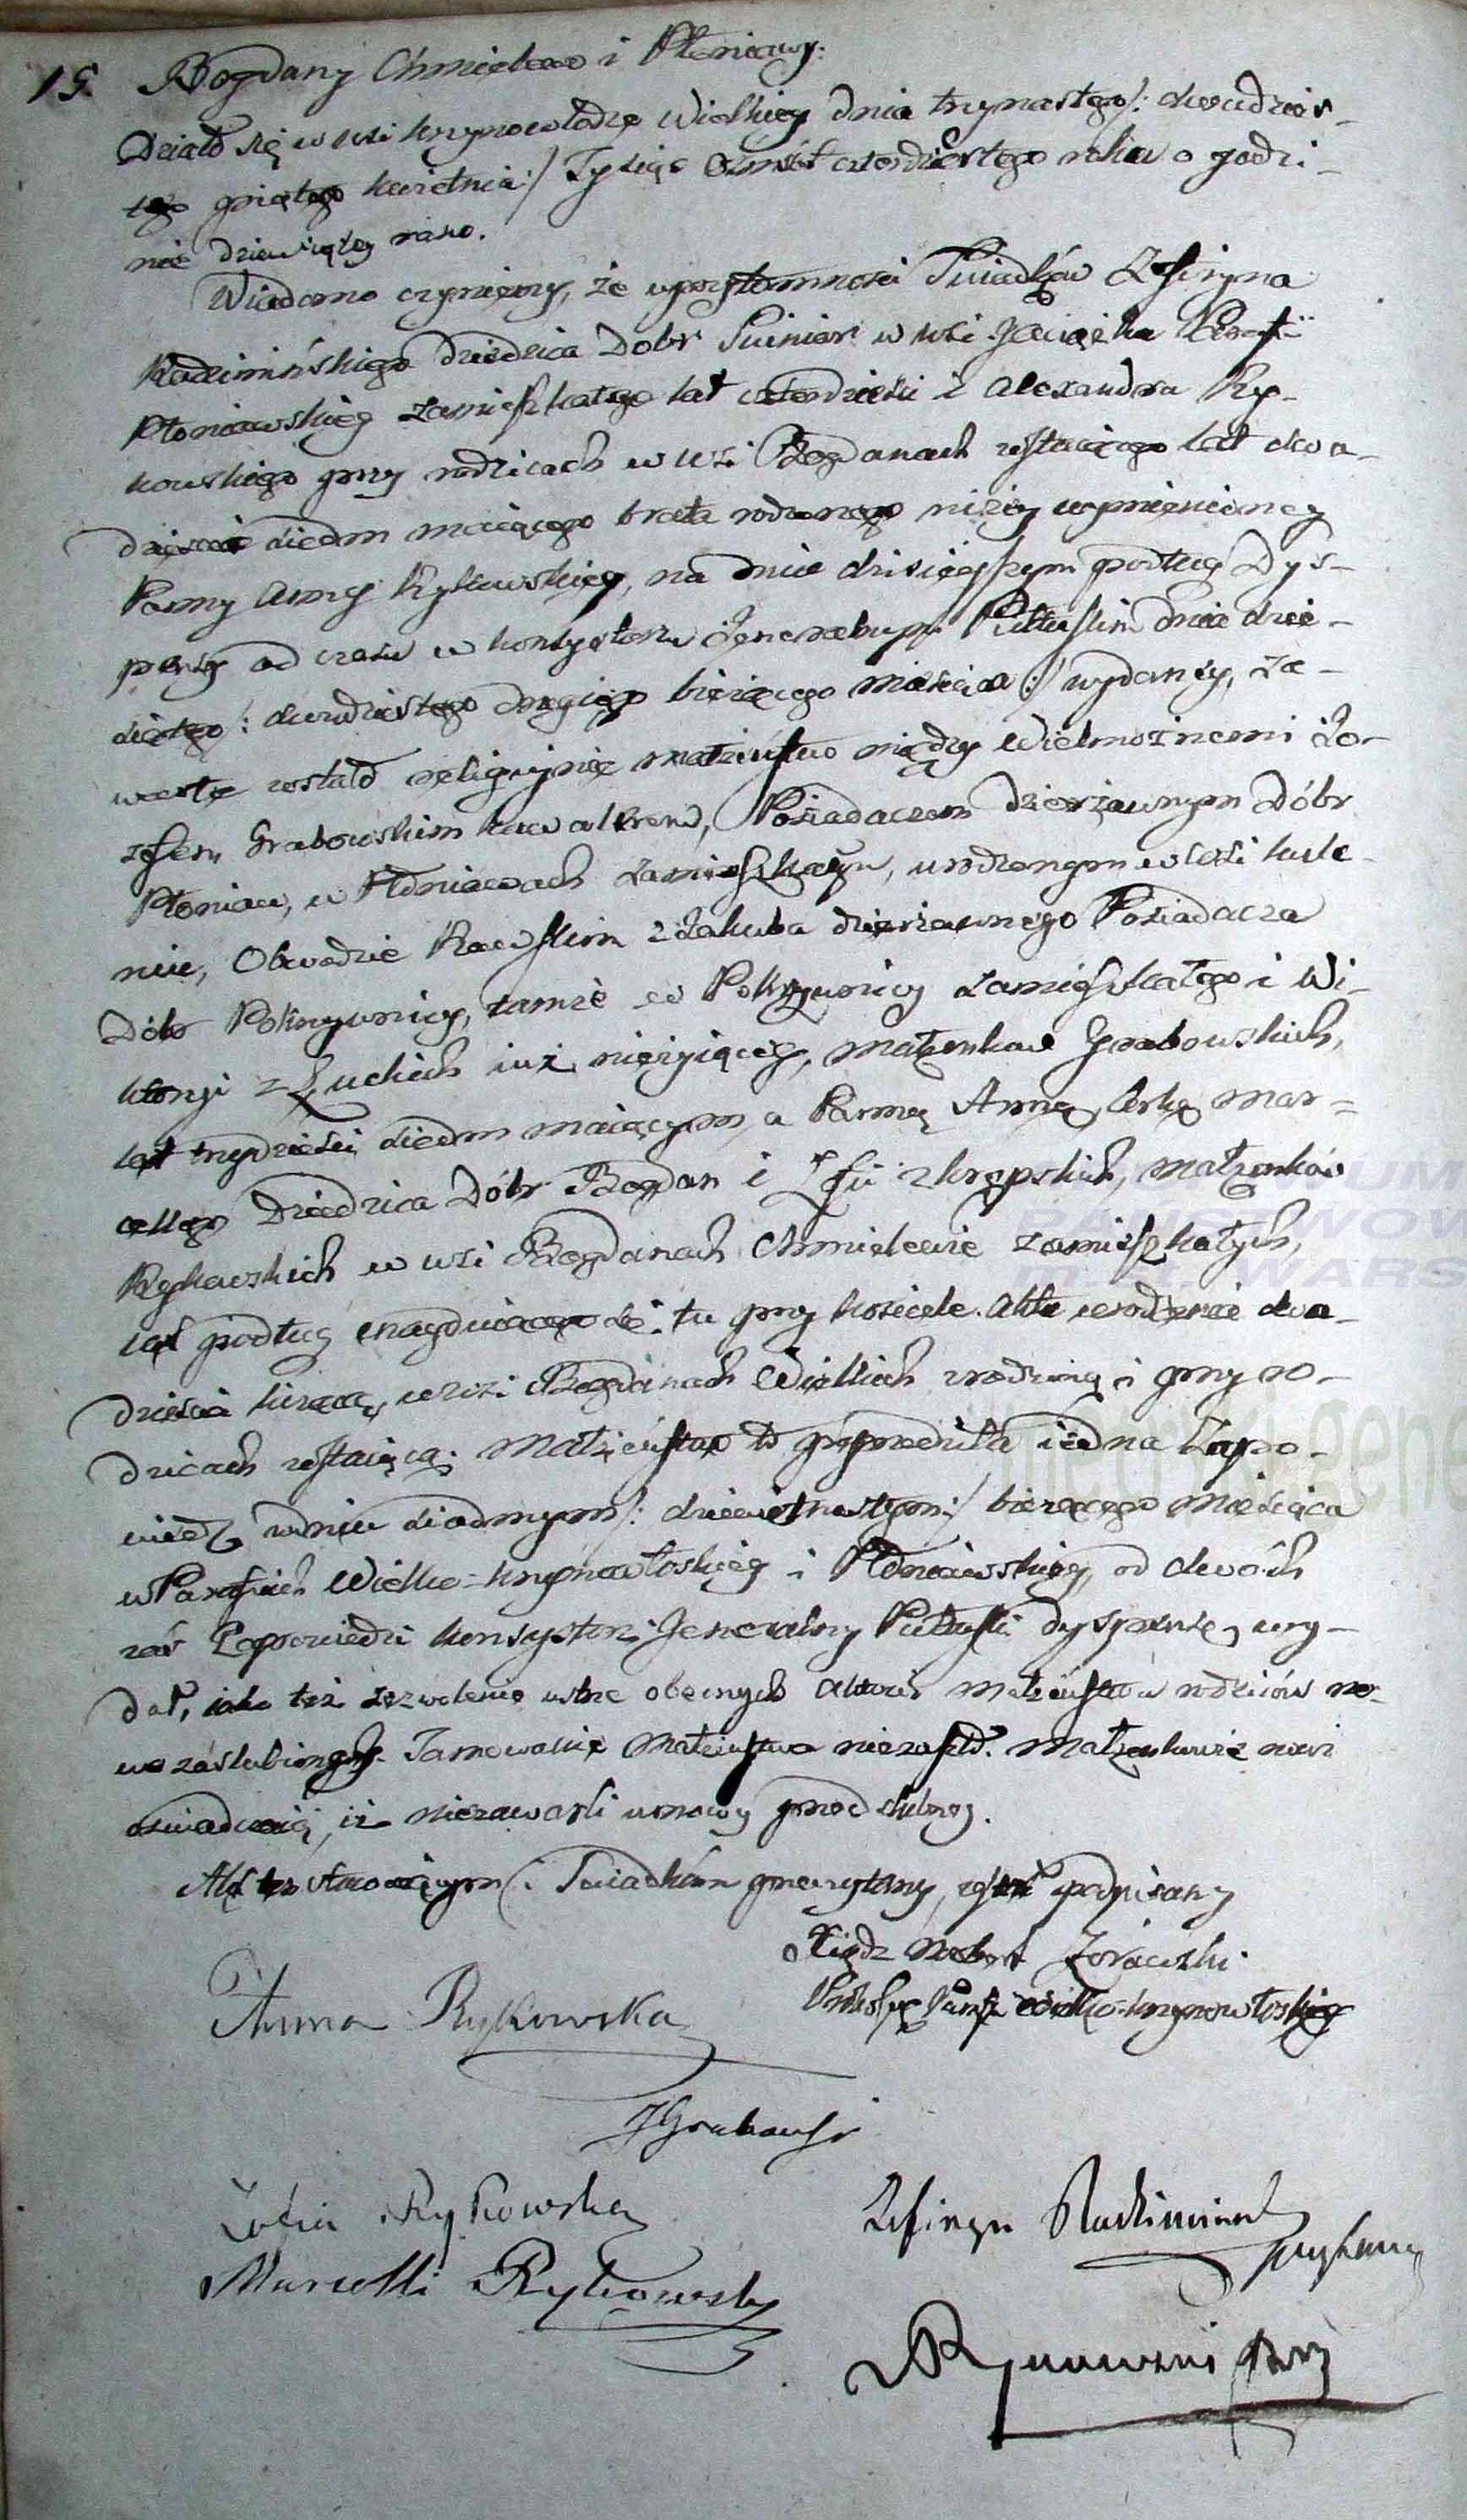 15. Bogdany Chmielewo i Płoniawy.
Działo się w wsi Krzynowłodze Wielkiey dnia trzynastego /: dwudzies-
tego piątego kwietnia :/ Tysiąc Ośmset czterdziestego roku o godzi-
nie dziewiątey rano.
Wiadomo czyniemy, że w przytomności Świadków Zefiryna
Radzimińskiego Dziedzica Dobr w wsi Jaciążku Parafii
Płoniawskiey zamieszkałego lat czterdzieści i Alexandra Ry-
kowskiego przy rodzicach w wsi Bogdanach zostaiącego lat dwa-
dzieścia siedm maiącego brata rodzonego niżey wymienioney
Panny Anny Rykowskiey, na dniu dzisieyszym podług Dys-
pensy od czasu w Konsystorzu Jeneralnym Pułtuskim dnia dzie-
siątego /: dwudziestego drugiego bieżącego miesiąca :/ wydaney, za-
warte zostało religijnie małżeństwo między Wielmożnemi Jó-
zefem Grabowskim kawalerem, Posiadaczem dzierżawnym Dóbr
Płoniaw, w Płoniawach zamieszkałym, urodzonym w wsi
Obwodzie Rawskim z Jakuba dzierżawnego Posiadacza
Dóbr Pokrzywnicy, tamże w Pokrzywnicy zamieszkałego i Wi-
ktoryi z Łuckich iuż nieżyiącey, małżonków Grabowskich,
lat trzydzieści siedm maiącym, a Panną Anną, córką Mar-
cellego Dziedzica Dóbr Bogdan i Zofii z Krępskich, małżonków
Rykowskich w wsi Bogdanach Chmielewie zamieszkałych,
iak podług znayduiącego się tu przy kościele Aktu urodzenia dwa-
dzieścia liczącą, w wsi Bogdanach Wielkich zrodzoną i przy ro-
dzicach zostaiącą. Małżeństwo to poprzedziła iedna Zapo-
wiedź w dniu siodmym /: dziewiętnastym :/ bieżącego miesiąca
w Parafiach Wielko-Krzynowłoskiey i Płoniawskiey, od dwóch
zaś Zapowiedzi Konsystorz Jeneralny Pułtuski dyspensę wy-
dał, iako też zezwolenie ustne obecnych Aktowi małżeństwa rodziców no-
wo zaślubioney. Tamowanie Małżeństwa niezaszło. Małżonkowie nowi
oświadczaią, iż niezawarli umowy przedślubney.
Akt ten stawaiącym i Świadkom przeczytany, został podpisany
Xiądz Norbert Żórawski
Proboszcz Parafii Wielko-Krzynowłoskiey
Anna Rykowska
JGrabowski
Zofia Rykowska
Zefiryn Radzimiński
Marcelli Rykowski
ARykowski